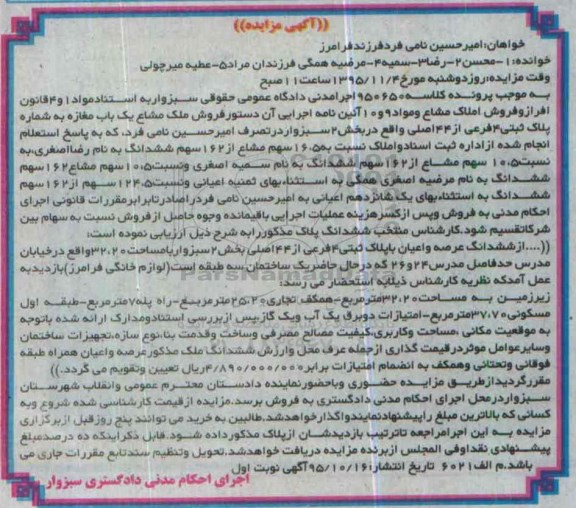 ((آگهی مزایده))
خواهان:امیرحسین نامی فردفرزندفرامرز
خوانده:۱-محسن۲-رضا۳-سمیه۴-مرضیه همگی فرزندان مراد۵-عطیه میرچولی
وقت مزایده:روزدوشنبه مورخ۱۳۹۵/۱۱/۴ساعت۱۱صبح
به موجب پرونده کلاسه۹۵۰۶۵۰اجرامدنی دادگاه عمومی حقوقی سبزواربه استنادمواد۱و۴قانون
افرازوفروش املاک مشاع ومواد۹و۱۰آئین نامه اجرایی آن دستورفروش ملک مشاع یک باب مغازه به شماره
پلاک ثبتی۴فرعی از۴۴اصلی واقع دربخش۲سبزواردرتصرف امیرحسین نامی فرد، که به پاسخ استعلام
انجام شده ازاداره ثبت اسنادواملاک نسبت به۱۶.۵سهم مشاع از۱۶۲سهم ششدانگ به نام رضااصغری،به
نسبت۱۰.۵سهم مشاع از۱۶۲سهم ششدانگ به نام سمیه اصغری ونسبت۱۰.۵سهم مشاع۱۶۲سهم
ششدانگ به نام مرضیه اصغری همگی به استثناءبهای ثمنیه اعیانی ونسبت۱۲۴.۵سهم از۱۶۲سهم
ششدانگ به استثناءبهای یک شانزدهم اعیانی به امیرحسین نامی فردراصادرتابرابرمقررات قانونی اجرای
احکام مدنی به فروش وپس ازکسرهزینه عملیات اجرایی باقیمانده وجوه حاصل ازفروش نسبت به سهام بین
شرکاتقسیم شود.کارشناس منتخب ششدانگ پلاک مذکوررابه شرح ذیل ارزیابی نموده است:
((....ازششدانگ عرصه واعیان باپلاک ثبتی۴فرعی از۴۴اصلی بخش۲سبزواربامساحت۳۲.۲۰واقع درخیابان
مدرس حدفاصل مدرس۲۴و۲۶که درحال حاضریک ساختمان سه طبقه است(لوازم خانگی فرامرز)بازدیدبه
عمل آمدکه نظریه کارشناس ذیلابه استحضار می رسد:
زیرزمین به مساحت۳۲.۲۰مترمربع-همکف تجاری۲۵.۲۰مترمربع-راه پله۷مترمربع-طبقه اول
مسکونی۳۷.۷۰مترمربع-امتیازات دوبرق یک آب ویک گاز،پس ازبررسی استنادومدارک ارائه شده باتوجه
به موقعیت مکانی ،مساحت وکاربری،کیفیت مصالح مصرفی وساخت وقدمت بنا،نوع سازه،تجهیزات ساختمان
وسایرعوامل موثردرقیمت گذاری ازجمله عرف محل وارزش ششدانگ ملک مذکورعرصه واعیان همراه طبقه
فوقانی وتحتانی وهمکف به انضمام امتیازات برابر۴/۸۹۰/۰۰۰/۰۰۰ریال تعیین وتقویم می گردد.))
مقررگردیدازطریق مزایده حضوری وباحضورنماینده دادستان محترم عمومی وانقلاب شهرستان
سبزواردرمحل اجرای احکام مدنی دادگستری به فروش برسد.مزایده ازقیمت کارشناسی شده شروع وبه
کسانی که بالاترین مبلغ راپیشنهادنمایندواگذارخواهدشد.طالبین به خرید می توانند پنج روزقبل ازبرگزاری
مزایده به این اجرامراجعه تاترتیب بازدیدشان ازپلاک مذکورداده شود.قابل ذکراینکه ده درصدمبلغ
پیشنهادی نقداوفی المجلس ازبرنده مزایده دریافت خواهدشد.تحویل وتنظیم سندتابع مقررات جاری می
باشد.م الف۶۰۲۱ تاریخ انتشار:۹۵/۱۰/۱۶آگهی نوبت اول
اجرای احکام مدنی دادگستری سبزوار
ParsNamadData